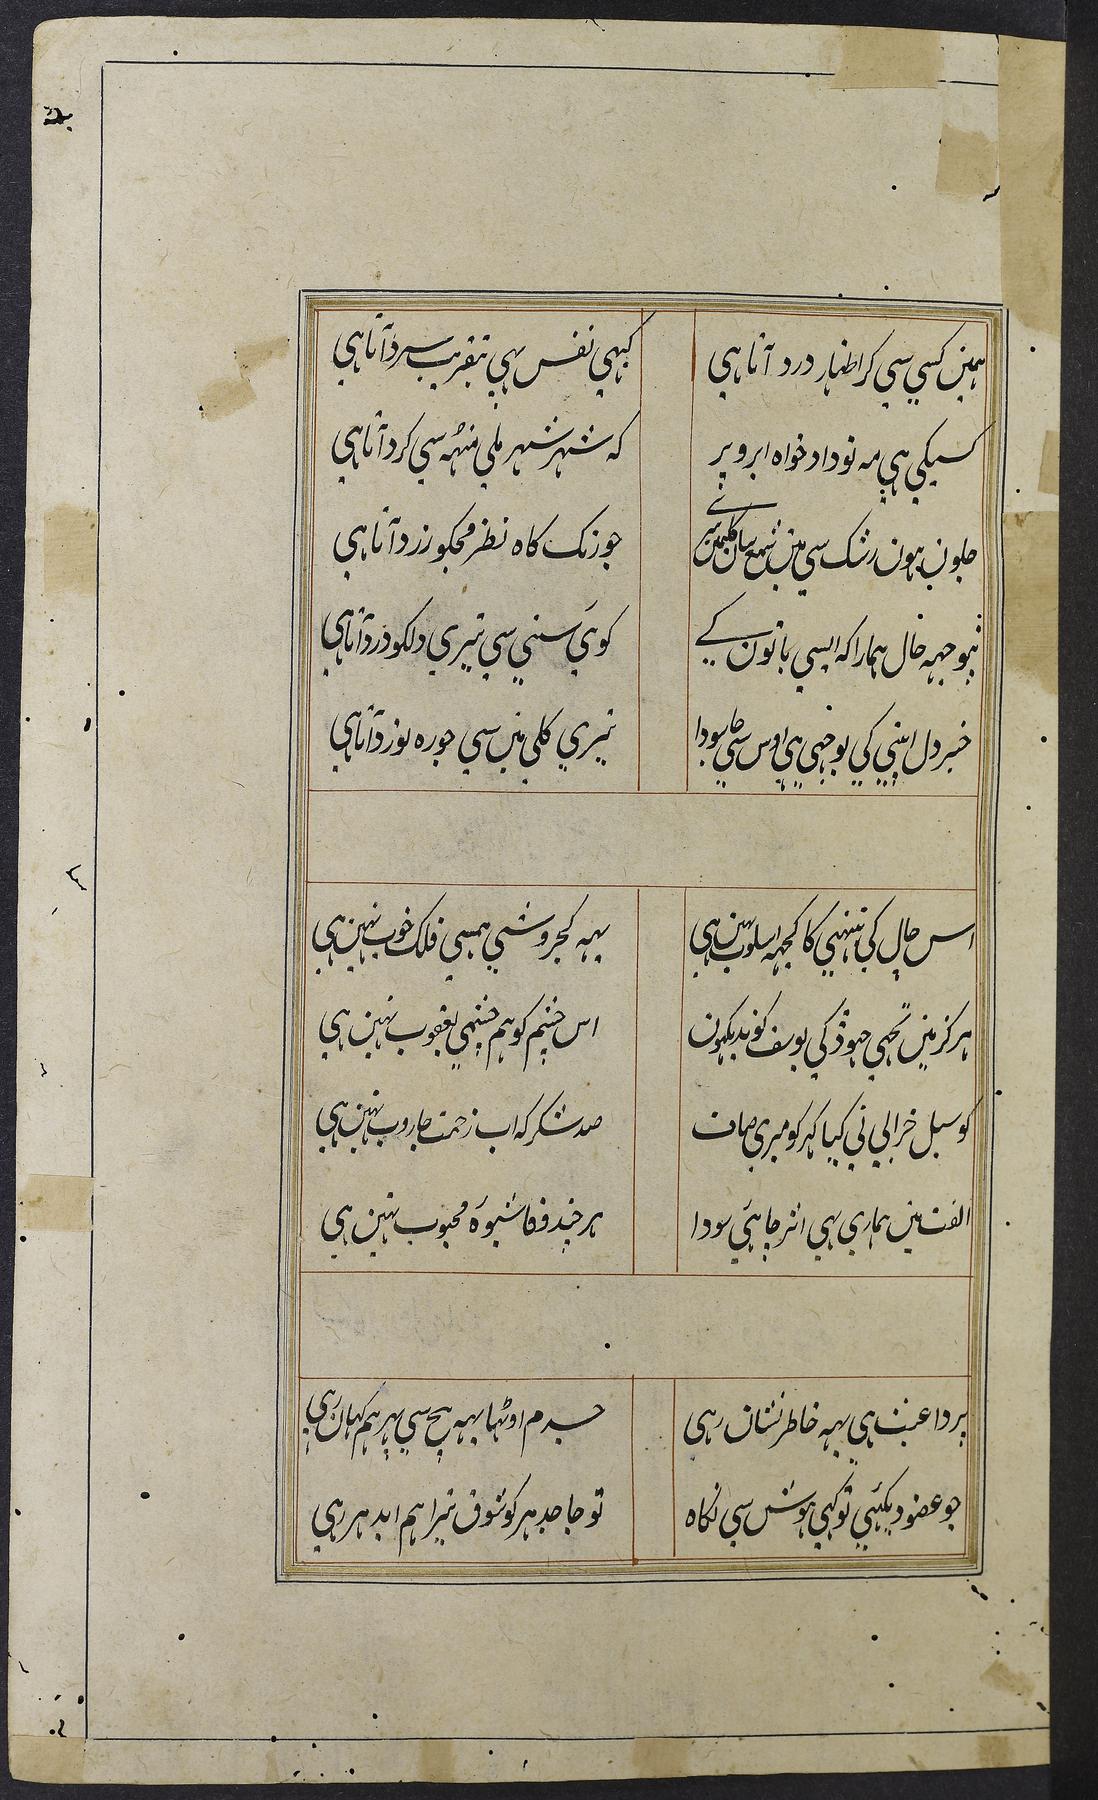 ہمین کسی سی کر اظہار درد آتا ہی کبہی نفس بہی بتقریب سرد آتا ہی
کسیکی ہی مہ نو داد خواہ ابرو پر کہ شہر شہر ملی منہہ سی کرد آتا ہی
جلون ہون رشک سی مین شمع سان جو رنک کاہ نظر مجکو زرد آتا ہی
نپوجہہ حال ہمارا کہ ایسی باتون کے کوئی سنی سی تیری دلکو درد آتا ہی
خبر دل اپنی کی پوجہی ہی اوس سی جا سودا تیری کلی مین سی جو رہ نورد آتا ہی
اس چال کی کا کجہہ اسلوب نہین ہی یہہ کجروشی ہمسی فلک خوب نہین ہی
ہرکز مین تجہی جہوڑ کی یوسف کو ندیکہون اس چشم کو ہم چشمی یعقوب نہین ہی
کو سیل خرابی نی کیا کہر کو میری صاف صد شکر کہ اب زحمت جاروب نہین ہی
الفت مین ہماری بہی اثر چاہئی سودا ہرچند وفا شیوہ محبوب نہین ہی
پردا عبث ہی یہہ خاطر نشان رہی جسدم اوٹہا یہہ بیچ سی پہر ہم کہان رہی
جو عضو دیکہئی تو کہی ہوش سی نکاہ تو جا جدہر کو شوق تیرا ہم اودہر رہی